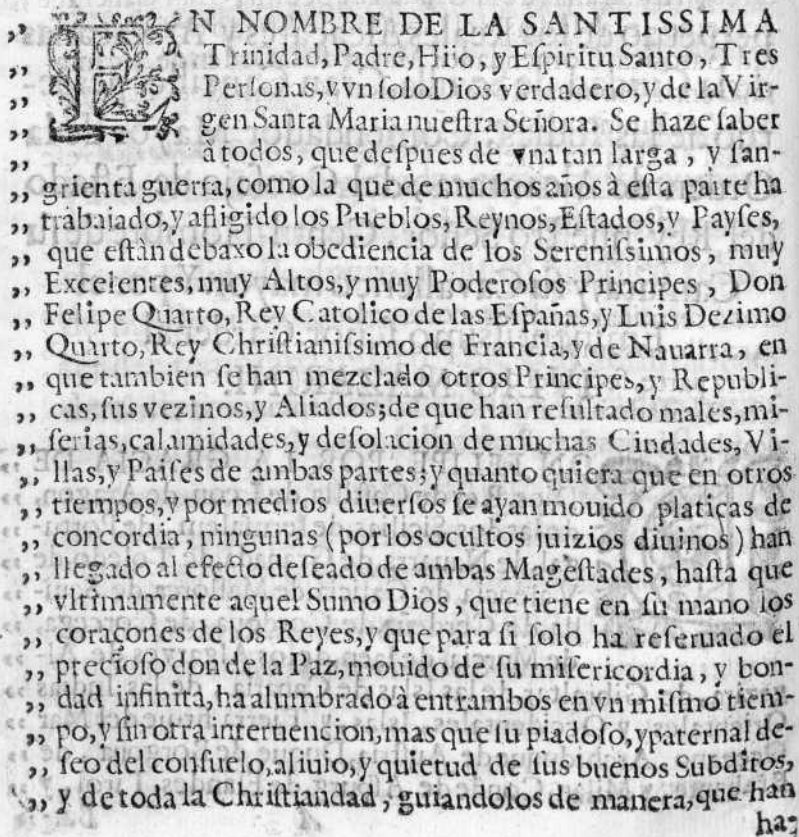 „ EN NOMBRE DE LA SANTISSIMA
„ Trinidad, Padre, Hijo, y Eſpiritu Santo, Tres
„ Perſonas, y vn ſolo Dios verdadero, y de la Vir-
„ gen Santa Maria nueſtra Señora. Se haze ſaber
„ à todos, que deſpues de vna tan larga, y ſan-
„ grienta guerra, como la que de muchos años à eſta parte ha
„ trabaiado, y afligido los Pueblos, Reynos, Eſtados, y Payſes,
„ que eſtàn debaxo la obediencia de los Sereniſsimos, muy
„ Excelentes, muy Altos, y muy Poderoſos Principes, Don
„ Felipe Quarto, Rey Catolico de las Eſpañas, y Luis Dezimo
„ Quarto, Rey Chriſtianiſsimo de Francia, y de Nauarra, en
„ que tambien ſe han mezclado otros Principes, y Republi-
„ cas, ſus vezinos, y Aliados; de que han reſultado males, mi-
„ ſerias, calamidades, y deſolacion de muchas Ciudades, Vi-
„ llas, y Paiſes de ambas partes; y quanto quiera que en otros
„ tiempos, y por medios diuerſos ſe ayan mouido platicas de
„ concordia, ningunas (por los ocultos juizios diuinos) han
„ llegado al efecto deſeado de ambas Mageſtades, haſta que
„ vltimamente aquel Sumo Dios, que tiene en ſu mano los
„ coraçones de los Reyes, y que para ſi ſolo ha reſeruado el
„ precioſo don de la Paz, mouido de ſu miſericordia, y bon-
„ dad infinita, ha alumbrado à entrambos en vn miſmo tiem-
„ po, y ſin otra interuencion, mas que ſu piadoſo, y paternal de-
„ ſeo del conſuelo, aliuio, y quietud de ſus buenos Subditos,
„ y de toda la Chriſtiandad, guiandolos de manera, que han
ha-